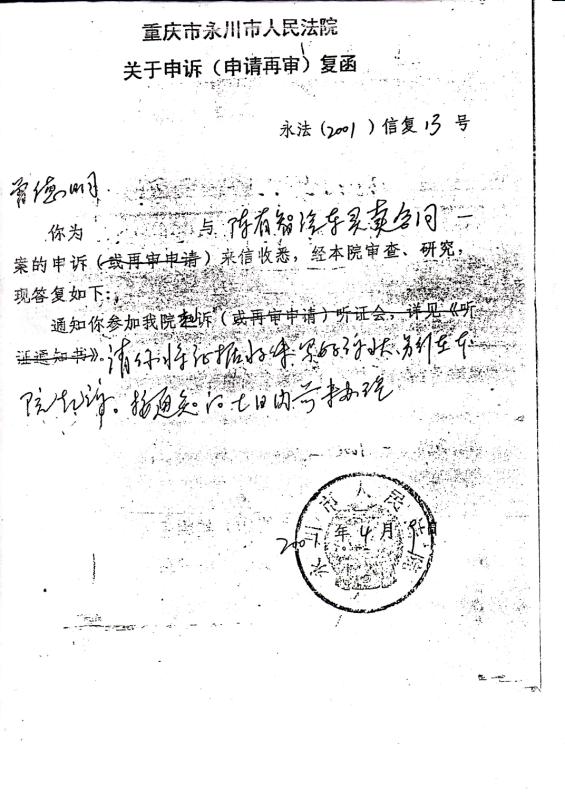 重庆市永川市人民法院
关于申诉（申请再审）复函
永法（2001）信复13号
曾德明
你为 与陈有智汽车买卖合同一
案的申诉（或再审申请）来信收悉，经本院审查、研究，
现答复如下：
通知你参加我院申诉（或再审申请）听证会，详见《听
证通知书》。请你将证据收集
院起诉。接通知的七日内前来办理
永川市人民法院
2001年4月 日